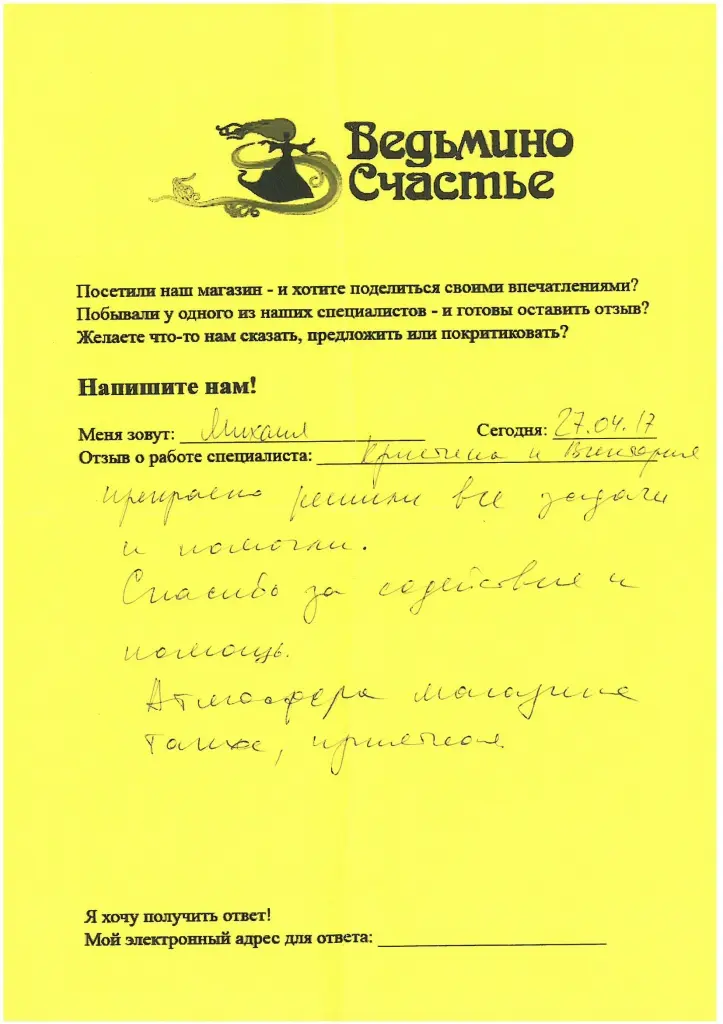 Ведьмино
Счастье
Посетили наш магазин - и хотите поделиться своими впечатлениями?
Побывали у одного из наших специалистов - и готовы оставить отзыв?
Желаете что-то нам сказать, предложить или покритиковать?
Напишите нам!
Меня зовут: Михаил Сегодня: 27.04.17
Отзыв о работе специалиста: Кристина и Виктория
прекрасно решили все задачи
и помогли.
Спасибо за содействия и
помощь.
Атмосфера магазина
также, приятная
Я хочу получить ответ!
Мой электронный адрес для ответа: